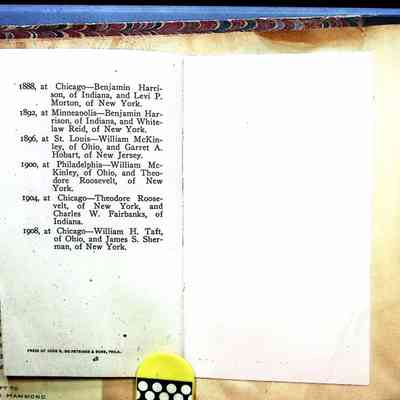 1888, at Chicago—Benjamin Harri-
son, of Indiana, and Levi P.
Morton, of New York.
1892, at Minneapolis—Benjamin Har-
rison, of Indiana, and White-
law Reid, of New York.
1896, at St. Louis—William McKin-
ley, of Ohio, and Garret A.
Hobart, of New Jersey.
1900, at Philadelphia—William Mc-
Kinley, of Ohio, and Theo-
dore Roosevelt, of New
York.
1904, at Chicago—Theodore Roose-
velt, of New York, and
Charles W. Fairbanks, of
Indiana.
1908, at Chicago—William H. Taft,
of Ohio, and James S. Sher-
man, of New York.
PRESS OF
& SONS, PHILA.
HAMMOND